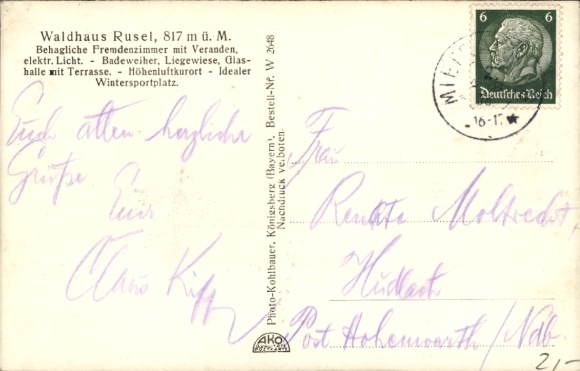 Waldhaus Rusel, 817 m ü. M.
Behagliche Fremdenzimmer mit Veranden,
elektr. Licht. - Badeweiher, Liegewiese, Glas-
halle mit Terrasse. - Höhenluftkurort - Idealer
Wintersportplatz.
Euch allen herzliche
Grüße
Euer
Claus
Photo-Kohlbauer, Königsberg (Bayern). Bestell-Nr. W 2648
Nachdruck verboten.
AKO
6 6
Deutsches Reich
MIET
16-17
Frau
Renate
Post Hohenwarth / Ndb.
2,-